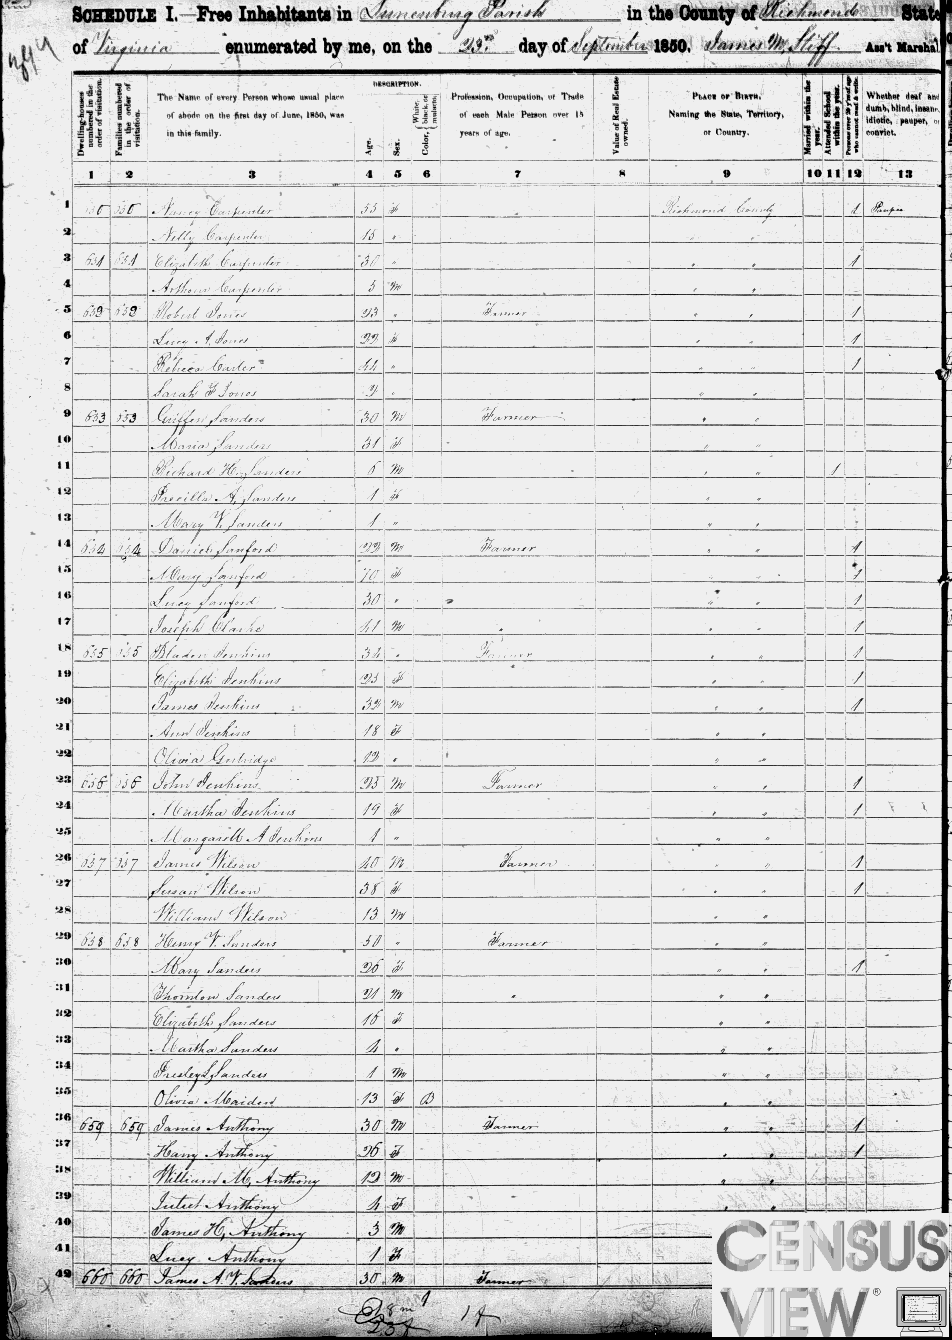 SCHEDULE I.—Free Inhabitants in Lunenburg Parish in the County of Richmond State
of Virginia enumerated by me, on the 23rd day of September 1850. James M. Stiff Ass't Marshal.
Dwelling-houses numbered in the order of visitation.
Families numbered in the order of visitation.
The Name of every Person whose usual place of abode on the first day of June, 1850, was in this family.
DESCRIPTION.
Age.
Sex.
Color, { White, black, or mulatto.
Profession, Occupation, or Trade of each Male Person over 15 years of age.
Value of Real Estate owned.
PLACE OF BIRTH. Naming the State, Territory, or Country.
Married within the year.
Attended School within the year.
Persons over 20 y'rs of age who cannot read & write.
Whether deaf and dumb, blind, insane, idiotic, pauper, or convict.
1 2 3 4 5 6 7 8 9 10 11 12 13
1 Nancy Carpenter 55 F " Richmond County 1 Pauper
2 Nelly Carpenter 15 " " "
3 651 651 Elizabeth Carpenter 30 " " " 1
4 Arthur Carpenter 5 M " "
5 652 652 Robert Jones 23 " Farmer " " 1
6 Lucy A Jones 22 F " " 1
7 Rebeca Carter 44 " " " 1
8 Sarah F Jones 2 " " "
9 653 653 Griffen Sanders 30 M Farmer " "
10 Maria Sanders 31 F " "
11 Richard H. Sanders 6 M " " 1
12 Precilla A, Sanders 1 F " "
13 Mary V. Sanders 1 " " "
14 654 654 Daniel Sanford 22 M Farmer " " 1
15 Mary Sanford 70 F " " 1
16 Lucy Sanford 30 " " " 1
17 Joseph Clarke 41 M " " " 1
18 655 655 Bladen Jenkins 34 " Farmer " " 1
19 Elizabeth Jenkins 25 F " " 1
20 James Jenkins 32 M " " 1
21 Ann Jenkins 18 F " "
22 Olivia Gutridge 12 " " "
23 656 656 John Jenkins 25 M Farmer " " 1
24 Martha Jenkins 19 F " " 1
25 Margarett A Jenkins 1 " " "
26 657 657 James Wilson 40 M Farmer " " 1
27 Susan Wilson 38 F " " 1
28 William Wilson 13 M " "
29 658 658 Henry V. Sanders 50 " Farmer " "
30 Mary Sanders 26 F " " 1
31 Thornton Sanders 21 M " " "
32 Elizabeth Sanders 16 F " "
33 Martha Sanders 4 " " "
34 Presley S, Sanders 1 M " "
35 Olivia Maiden 13 F B " "
36 659 659 James Anthony 30 M Farmer " " 1
37 Hany Anthony 26 F " " 1
38 William M, Anthony 12 M " "
39 Juliet Anthony 4 F " "
40 James H, Anthony 3 M
41 Lucy Anthony 1 F
42 660 660 James A V. Sanders 30 M Farmer
CENSUS
VIEW®